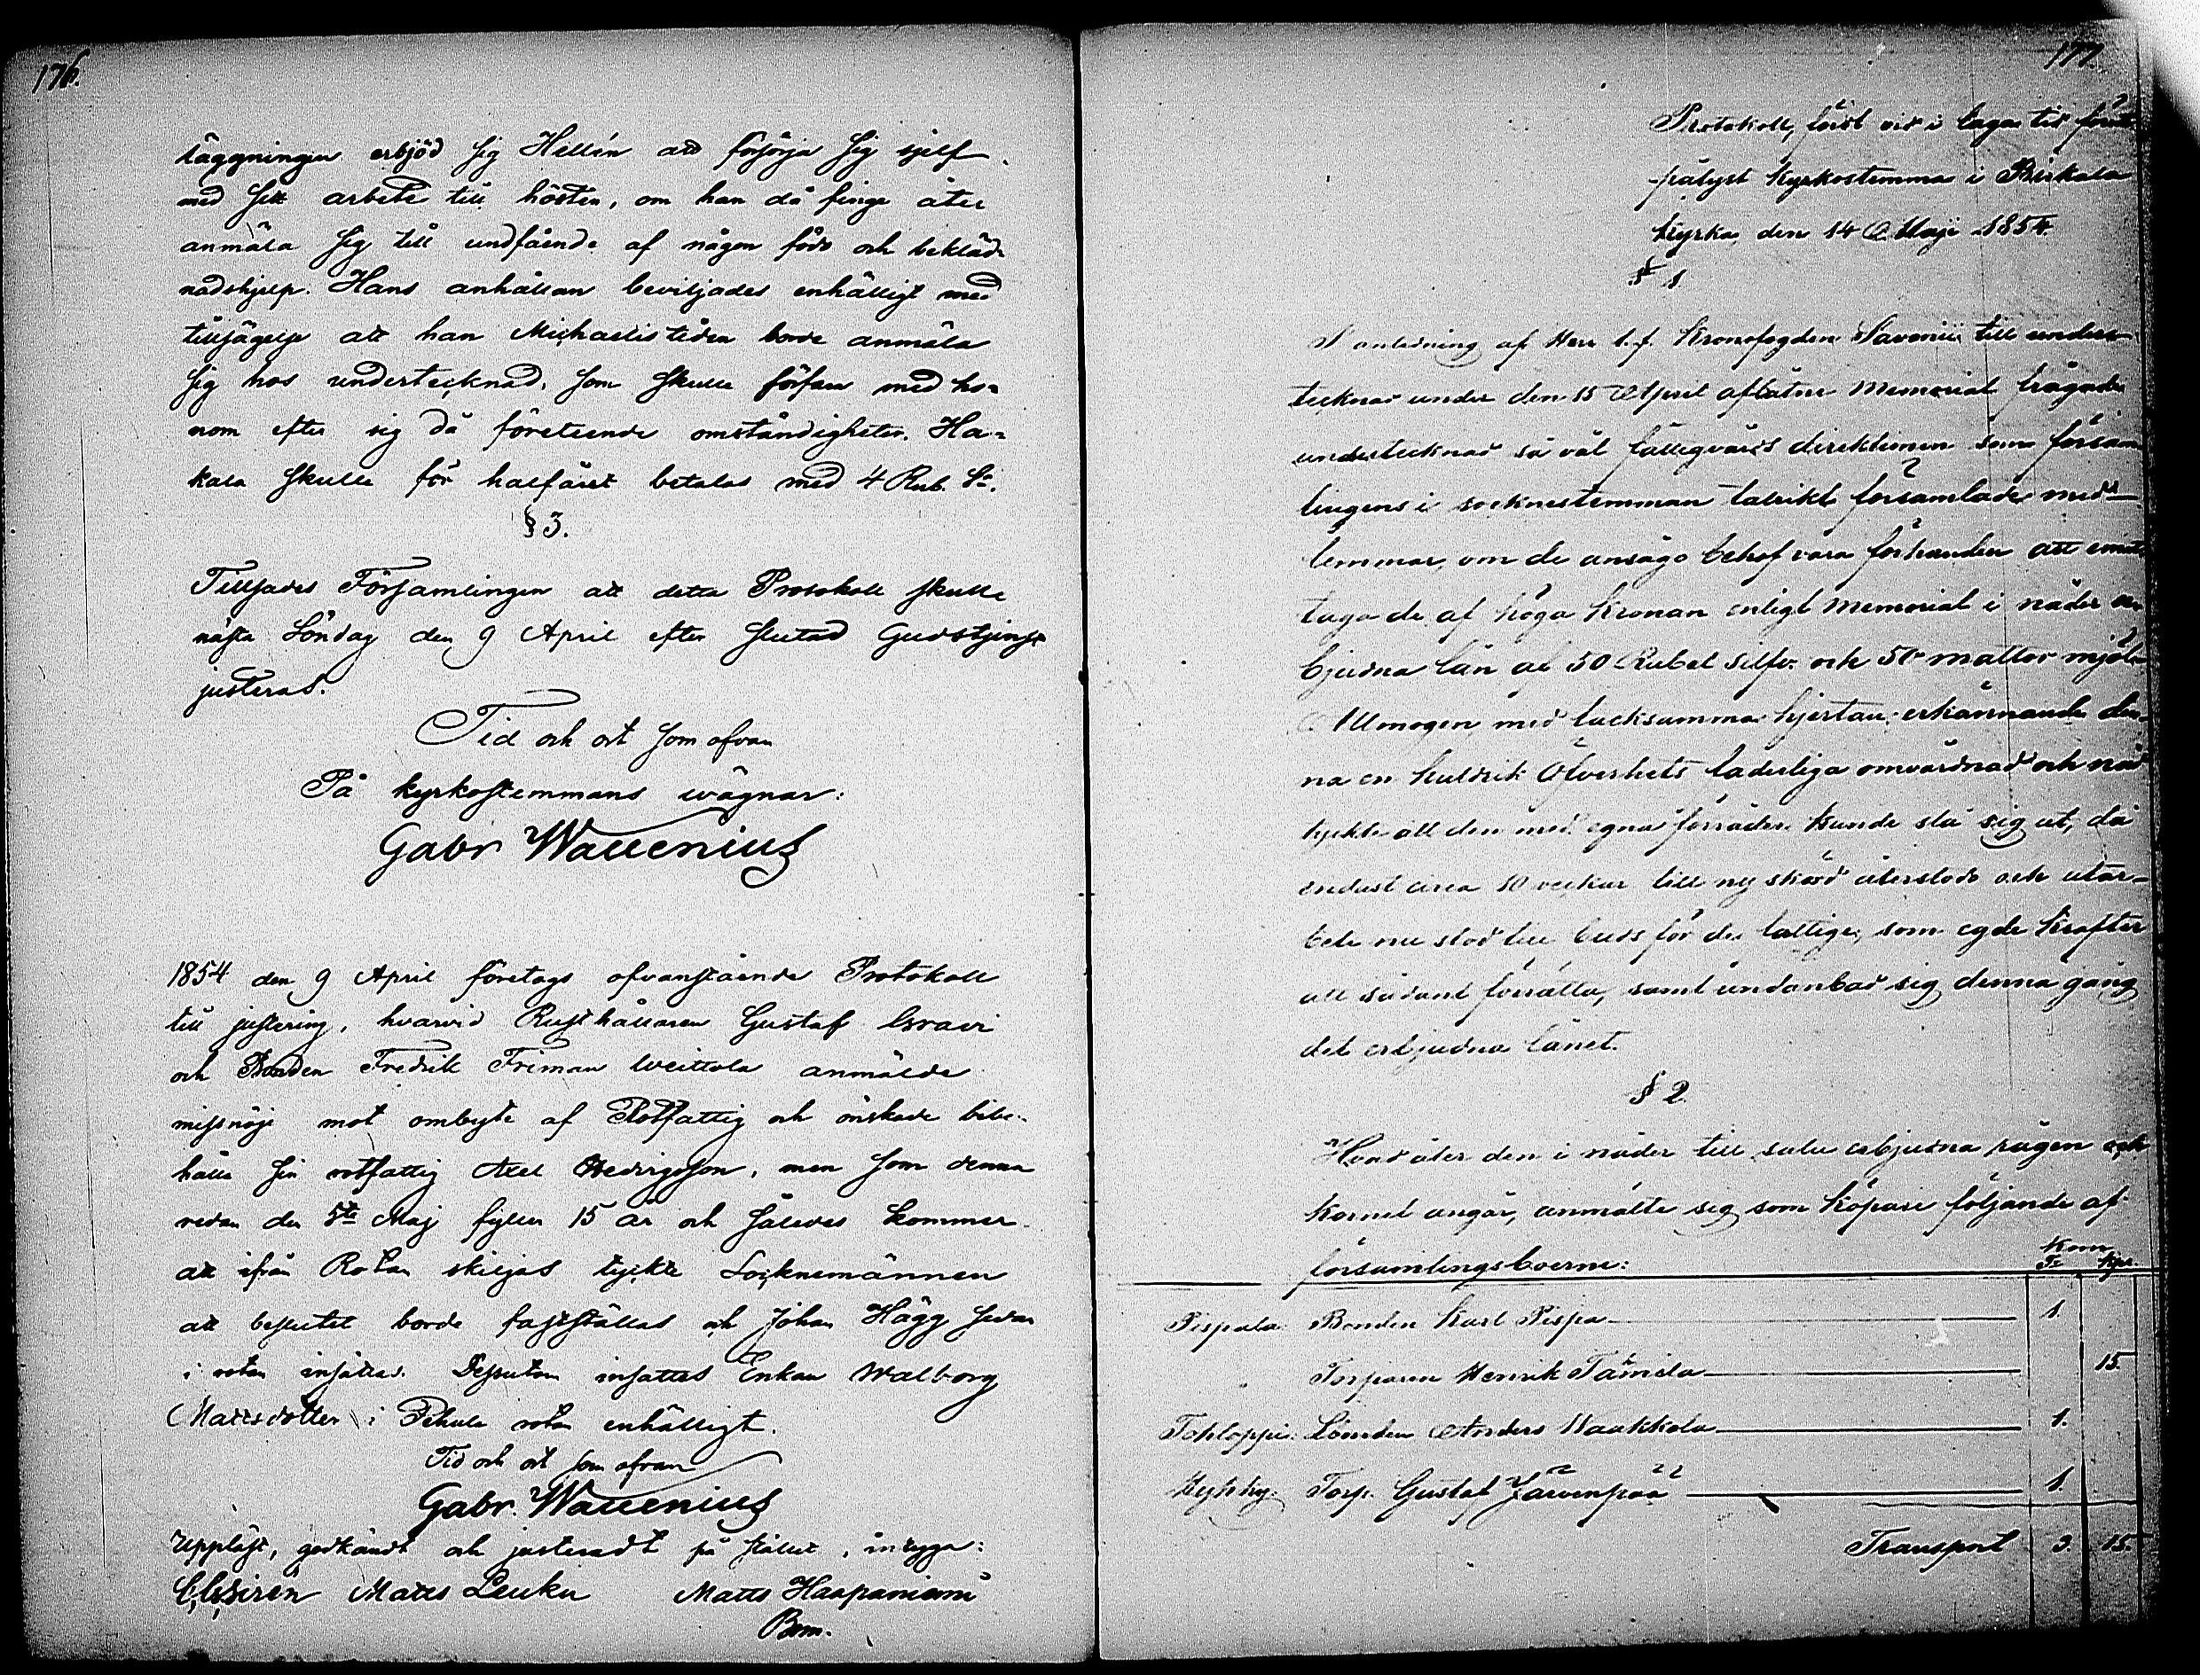 176.
läggningen erbjöd sig Hellén att försörja sig sjelf
med sitt arbete till hösten, om han då finge åter
anmäla sig till undfående af någon födo och bekläd-
nadshjelp. Hans anhållan beviljades enhälligt med
tillsägelse att han Michaelistiden borde anmäla
sig hos undertecknad, som skulle förfara med ho-
nom efter sig då företeende omständigheter. Ha-
kala skulle för halfåret betalas med 4 Rub. Sr.
§ 3.
Tillsades Församlingen att detta Protokoll skulle
nästa Söndag den 9 April efter slutad Gudstjenst
justeras.
Tid och ort som ofvan
På kyrkostemmans wägnar:
Gabr Wallenius
1854 den 9 April företogs ofvanstående Protokoll
till justering, hvarvid Rusthållaren Gustaf
och Bonden Fredrik Friman Weittola anmälde
missnöje mot ombyte af Rotfattig och önskade bibe-
hålla sin rotfattig Axel Hedrigsson, men som denna
redan den 5te Maj fyller 15 år och således kommer
att ifrån Rotan skiljas tyckte Socknemännen
att beslutet borde fastställas och Johan Hägg sedan
i rotan insättas. Dessutom insattes Enkan Walborg
Mattsdotter i Pekula rota enhälligt.
Tid och ort som ofvan
Gabr. Wallenius
Uppläst, godkändt och justeradt på stället, intyga:
Matts Leuku Matts Haapaniemi
Bm.
177
Protokoll, fördt vid i laga tid förut
pålyst Kyrkostemma i Birkala
kyrka, den 14 Maji 1854.
§ 1
I anledning af Herr t.f. Kronofogden Savonii till under-
tecknad under den 15 April aflåtne Memorial frågade
undertecknad så väl fattigvårds direktionen som försam
lingens i socknestemman talrikt församlade med-
lemmar, om de ansågo behof vara förhanden att emot
taga de af höga Kronan enligt memorial i nåder er
bjudna lån af 50 Rubel Silfv. och 50 mattor mjöl.
Allmogen med tacksamma hjertan erkännande den-
na en huldrik Öfverhets faderliga omvårdnad och nåd
tyckte att den med egna förråder kunde slå sig ut, då
endast circa 10 veckor till ny skörd återstodo och utar-
bete nu stod till buds för de fattige, som egde krafter
att sådant förrätta, samt undanbad sig denna gång
det erbjudna lånet.
§ 2.
Hvad åter den i nåder till salu erbjudna rågen och
kornet angår, anmälte sig som köpare följande af
församlingsboerne:
Korn
Tr Kpr
Pispala: Bonden Karl Pispa 1.
Torparen Henrik Tamela 15.
Tohloppi: Bonden Anders Kaakkola 1.
Hyhky: Torp. Gustaf Järvenpää 1.
Transport 3. 15.